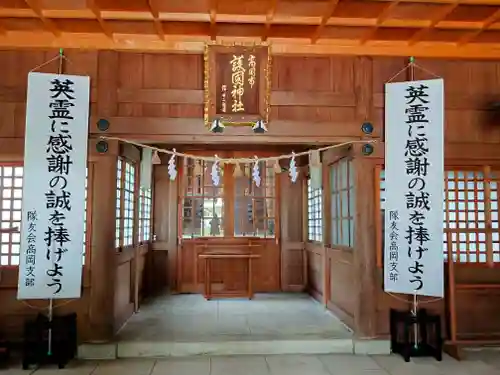 英霊に感謝の誠を捧げよう
隊友会高岡支部
高岡市
護国神社
英霊に感謝の誠を捧げよう
隊友会高岡支部